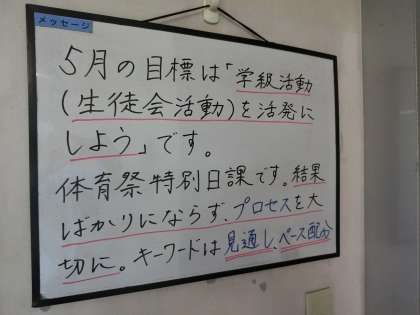 メッセージ
5月の目標は「学級活動
(生徒会活動)を活発に
しよう」です。
体育祭特別日課です。結果
ばかりにならず、プロセスを大
切に。キーワードは見通し、ペース配分